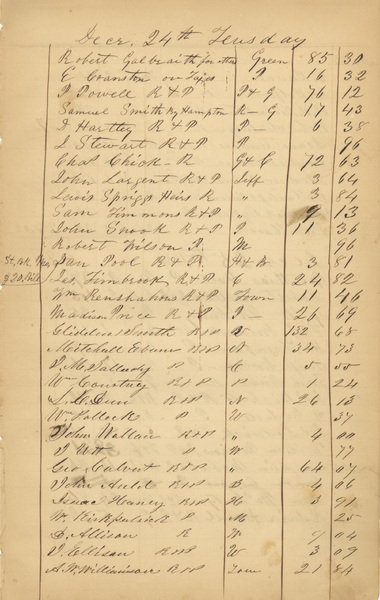 Decr. 24th Tuesday
Robert Galbraith for other Green 85 30
E Cranston on Taxes P 16 32
P Powell R & P P & G 76 12
Samuel Smith by Hampton R — G 17 43
D Hartley R & P P — 6 38
L Stewart R & P P 96
Chas Chick - R G & C 72 63
John Largent R & P Jeff 3 64
Lewis Spriggs Heirs R " 3 84
Sam Timmons R & P " 9 13
John Snook R & P P 11 36
Robert Wilson P. M 96
Pool R & P 3 81
Jas. Timbrook R & P C 24 82
Wm Renshaw R & P Town 11 46
Madison Price R & P P — 26 69
Glidden Smith R & P V 132 68
Mitchell Evans R & P N 34 73
P C 5 55
Wm Courtney R & P P 1 24
R & P N 26 13
Wm Pollock P W 37
John Wallace R & P " 4 00
J Utt P W 77
Geo Calvert R & P " 64 07
John Auld R & P B 4 06
Isaac Haney R & P H 3 91
W. Kirkpatrick P M 25
D. Allison R W 9 04
J. Ellison R & P W 3 09
A. W. Williamson R & P Town 21 84